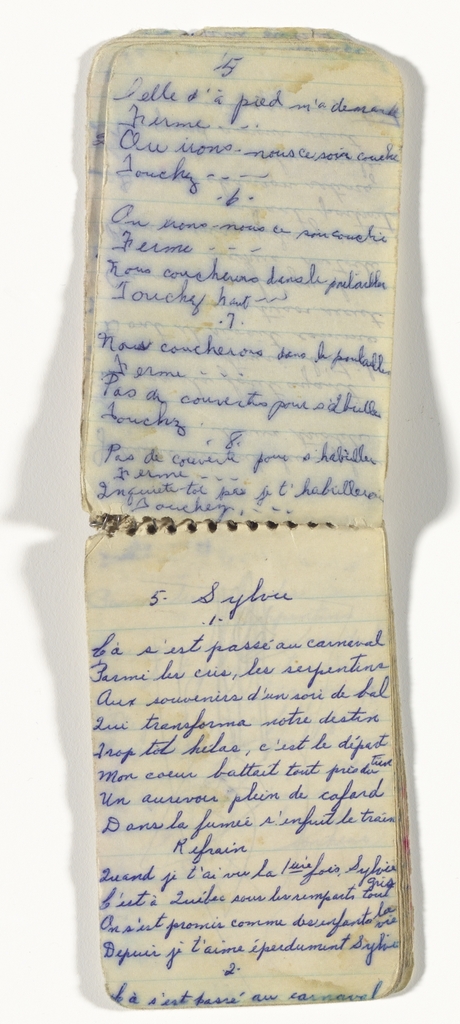 5
Celle d'à pied m'a demandé
Ferme . . . .
Ou irons-nous ce soir couché
Touchez - - - -
. 6 .
Ou irons-nous ce soir couchi
Ferme - - -
Nous coucherons dans le poulailler
Touchez haut
. 7 .
Nous coucherons dans le poulailler
Ferme - - -
Pas de couvertes pour s'abiller
Touchz
. 8.
Pas de couverte pour s'habiller
Ferme - - -
Inquiete toi pas je t'habillerai
Touchez, - - -
5 Sylvie
. 1 .
Cà s'est passé au carneval
Parmi les cris, les serpentins
Aux souvenirs d'un soir de bal
Qui transforma notre destin
Trop tot helas, c'est le départ
Mon coeur battait tout près du tien
Un aurevoir plein de cafard
Dans la fumée s'enfuit le train
Refrain
Quand je t'ai vu la 1ière fois, Sylvie
C'est à Québec sous les remparts tout gris
On s'est promis comme des enfants la vie
Depuis je t'aime éperdument Sylvie
. 2 .
Cà s'est passé au carneval